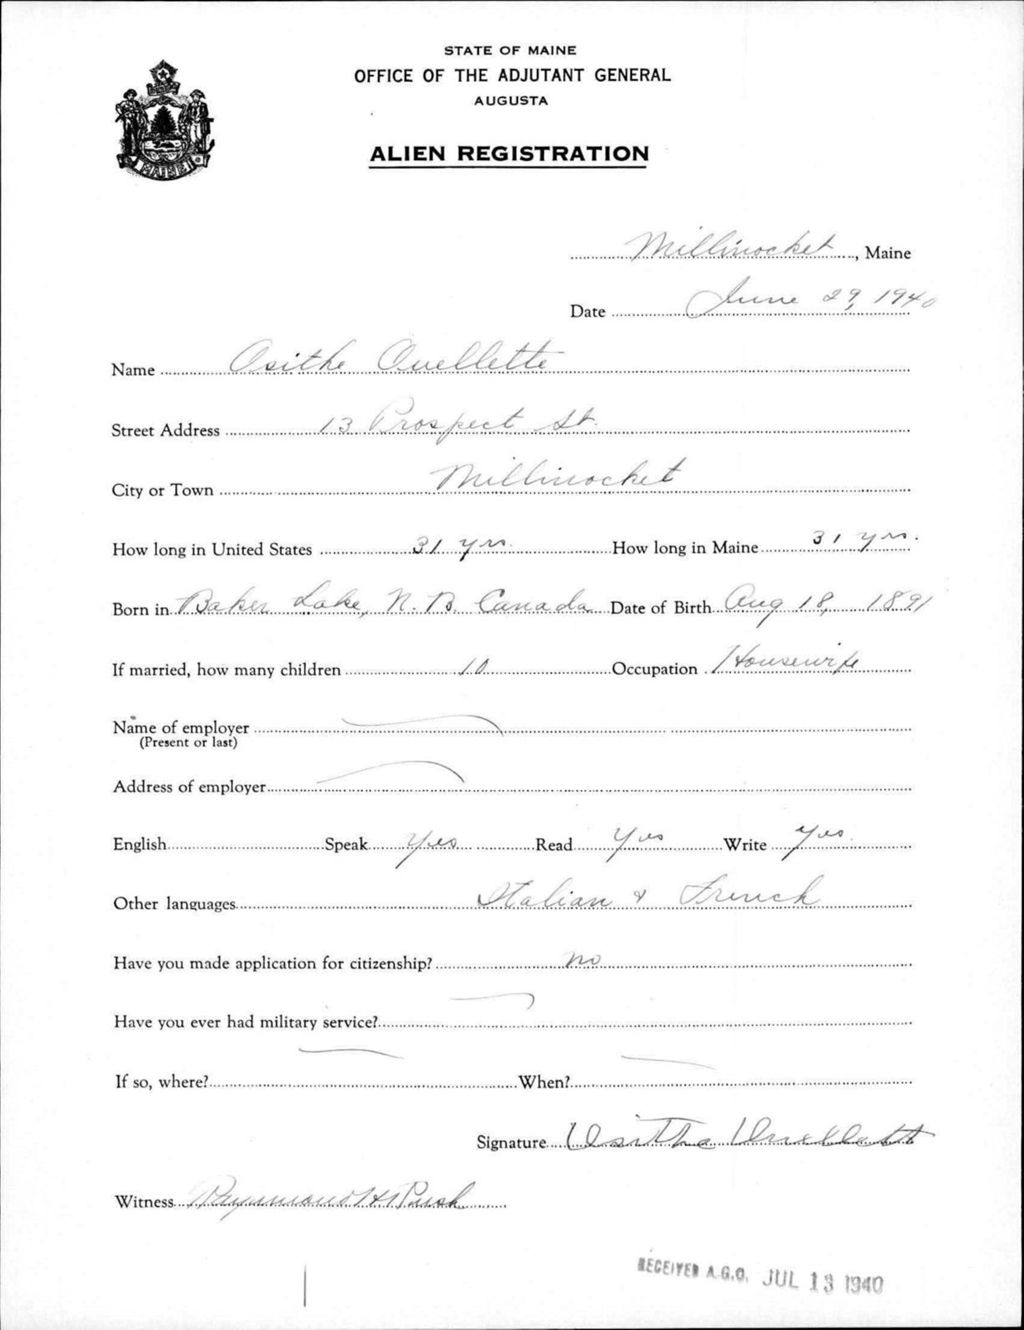 STATE OF MAINE
OFFICE OF THE ADJUTANT GENERAL
AUGUSTA
MAINE
ALIEN REGISTRATION
Millinocket, Maine
Date June 29, 1940
Name Osithe Ouellette
Street Address 13 Prospect St.
City or Town Millinocket
How long in United States 31 yrs. How long in Maine 31 yrs.
Born in Baker Lake, N. B. Canada Date of Birth Aug 18, 1891
If married, how many children 10 Occupation Housewife
Name of employer
(Present or last)
Address of employer
English Speak Yes Read Yes Write Yes
Other languages Italian & French
Have you made application for citizenship? no
Have you ever had military service?
If so, where? When?
Signature Osithe Ouellett
Witness Raymond H Rush
RECEIVED A.G.O. JUL 13 1940